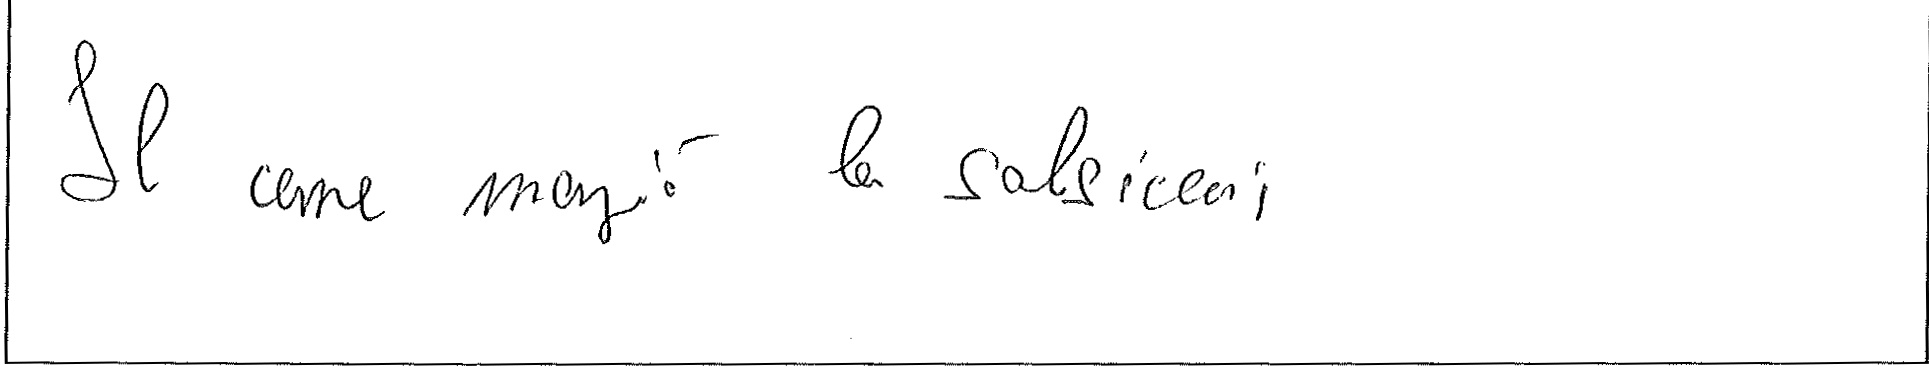 Il cane mangiò la salsiccia;